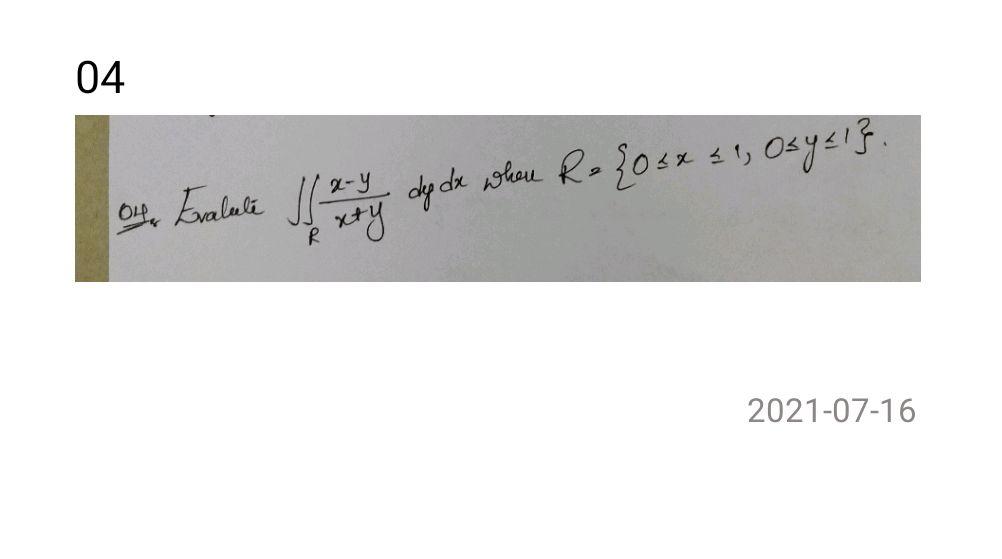 04
04. Evalute ∬_R (x-y)/(x+y) dy dx when R = {0 ≤ x ≤ 1, 0 ≤ y ≤ 1}.
2021-07-16